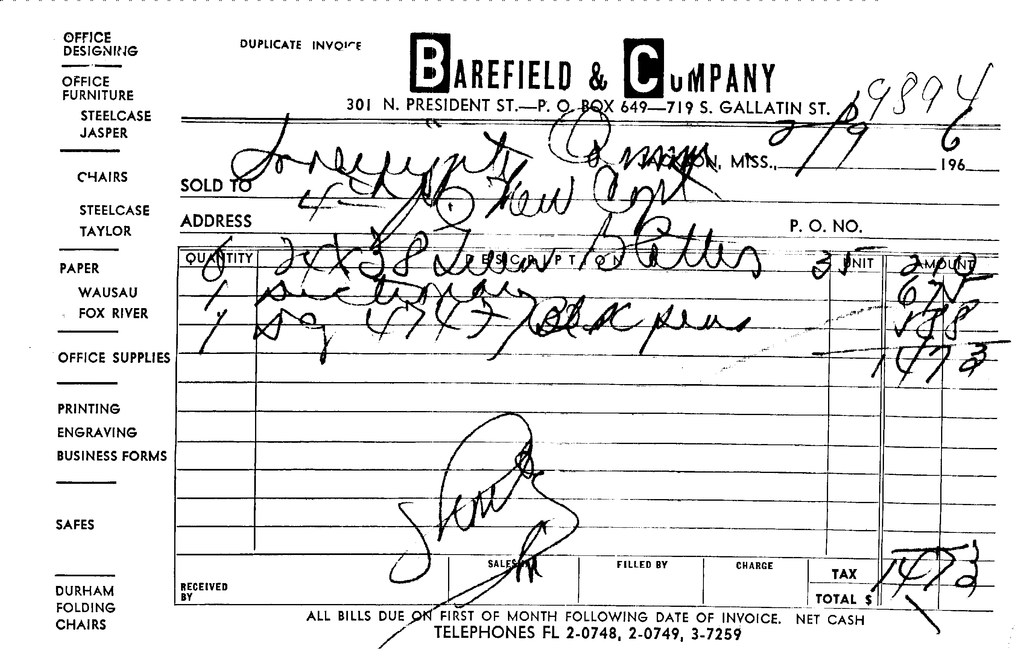 OFFICE
DESIGNING
OFFICE
FURNITURE
STEELCASE
JASPER
CHAIRS
STEELCASE
TAYLOR
PAPER
WAUSAU
FOX RIVER
OFFICE SUPPLIES
PRINTING
ENGRAVING
BUSINESS FORMS
SAFES
DURHAM
FOLDING
CHAIRS
DUPLICATE INVOICE
BAREFIELD & COMPANY
301 N. PRESIDENT ST.—P. O. BOX 649—719 S. GALLATIN ST.
9894
JACKSON, MISS., 2/19 1966
SOLD TO
ADDRESS New Capt P. O. NO.
QUANTITY DESCRIPTION UNIT AMOUNT
6 24 X 38 Blotters 35 210
1 dictionary 675
1 4747 pens 588
1473
RECEIVED
BY
SALESMAN
FILLED BY
CHARGE
TAX
TOTAL $ 1473
ALL BILLS DUE ON FIRST OF MONTH FOLLOWING DATE OF INVOICE. NET CASH
TELEPHONES FL 2-0748, 2-0749, 3-7259